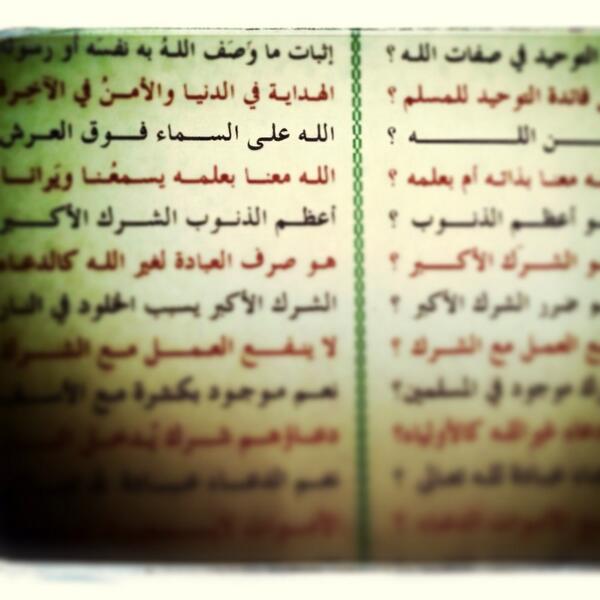 التوحيد في صفات الله ؟ إثبات ما وَصَف اللهُ به نفسَه أو رسوله
فائدة التوحيد للمسلم ؟ الهداية في الدنيا والأمنُ في الآخِرة
الله ؟ الله على السماء فوق العرش
معنا بذاته أم بعلمه ؟ الله معنا بعلمه يسمعُنا ويَرانا
أعظم الذنوب ؟ أعظم الذنوب الشرك الأكبر
الشرك الأكبر ؟ هو صرف العبادة لغير الله كالدعاء
ضرر الشرك الأكبر ؟ الشرك الأكبر يسبب الخلود في النار
العمل مع الشرك ؟ لا ينفع العمل مع الشرك
موجود في المسلمين؟ نعم موجود بكثرة مع الأسف
غير الله كالأولياء؟ دعاؤهم شرك يُدخل
عبادة لله تعالى ؟ نعم الدعاء عبادة